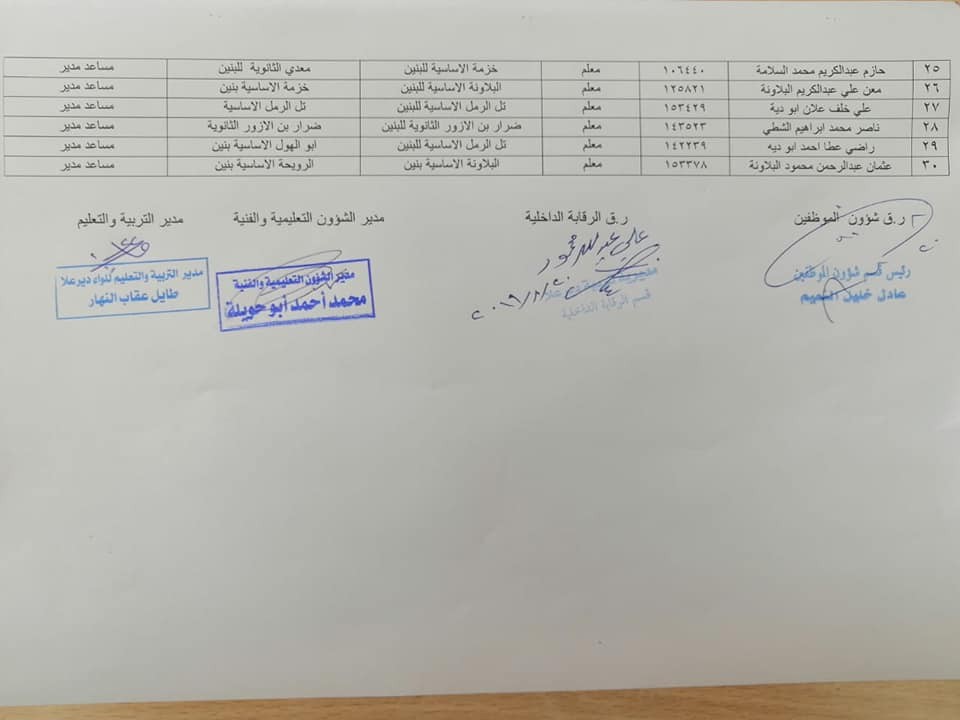 ٢٥ حازم عبدالكريم محمد السلامة ١٠٦٤٤٠ معلم خزمة الاساسية للبنين معدي الثانوية للبنين مساعد مدير
٢٦ معن علي عبدالكريم البلاونة ١٢٥٨٢١ معلم البلاونة الاساسية للبنين خزمة الاساسية بنين مساعد مدير
٢٧ علي خلف علان ابو دية ١٥٣٤٢٩ معلم تل الرمل الاساسية للبنين تل الرمل الاساسية مساعد مدير
٢٨ ناصر محمد ابراهيم الشطي ١٤٣٥٢٣ معلم ضرار بن الازور الثانوية للبنين ضرار بن الازور الثانوية مساعد مدير
٢٩ راضي عطا احمد ابو ديه ١٤٢٢٣٩ معلم تل الرمل الاساسية للبنين ابو الهول الاساسية بنين مساعد مدير
٣٠ عثمان عبدالرحمن محمود البلاونة ١٥٣٣٧٨ معلم البلاونة الاساسية بنين الرويحة الاساسية بنين مساعد مدير
ر.ق شؤون الموظفين ر.ق الرقابة الداخلية مدير الشؤون التعليمية والفنية مدير التربية والتعليم
رئيس قسم شؤون الموظفين
عادل خليل
علي
قسم الرقابة الداخلية
مدير الشؤون التعليمية والفنية
محمد أحمد أبو حويلة
مدير التربية والتعليم للواء ديرعلا
طايل عقاب النهار